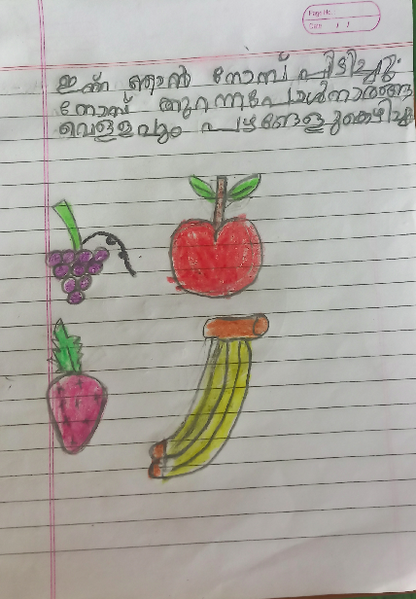 Page No.
Date / /
ഇന്ന് ഞാൻ നോമ്പ് പിടിച്ചു.
നോമ്പ് തുറന്നപോൾനാരങ്ങ
വെള്ളവും പഴങ്ങളുംകഴിച്ചു